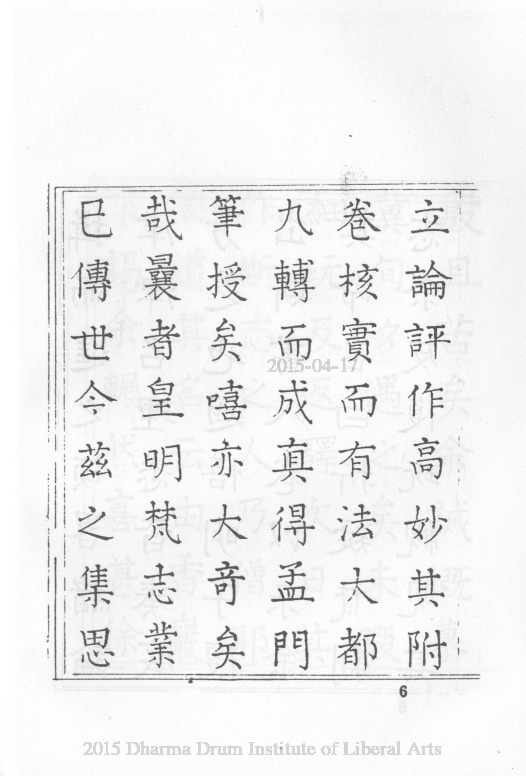 立論評作高妙其附
卷核實而有法大都
九轉而成真得孟門
筆授矣嘻亦大奇矣
哉曩者皇明梵志業
已傳世今茲之集思
2015-04-17
6
2015 Dharma Drum Institute of Liberal Arts